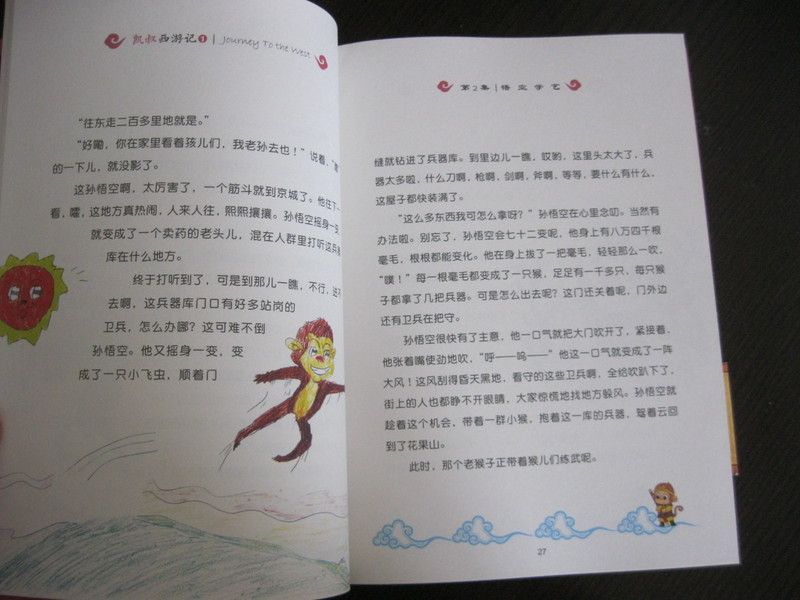 凯叔西游记1 | Journey To the West
“往东走二百多里地就是。”
“好嘞，你在家里看着孩儿们，我老孙去也！”说着，“嗖”
的一下儿，就没影了。
这孙悟空啊，太厉害了，一个筋斗就到京城了。他往下一
看，嚯，这地方真热闹，人来人往，熙熙攘攘。孙悟空摇身一变，
就变成了一个卖药的老头儿，混在人群里打听这兵器
库在什么地方。
终于打听到了，可是到那儿一瞧，不行，进不
去啊，这兵器库门口有好多站岗的
卫兵，怎么办哪？这可难不倒
孙悟空。他又摇身一变，变
成了一只小飞虫，顺着门
第2集 | 悟空学艺
缝就钻进了兵器库。到里边儿一瞧，哎哟，这里头太大了，兵
器太多啦，什么刀啊，枪啊，剑啊，斧啊，等等，要什么有什么，
这屋子都快装满了。
“这么多东西我可怎么拿呀？”孙悟空在心里念叨。当然有
办法啦。别忘了，孙悟空会七十二变呢，他身上有八万四千根
毫毛，根根都能变化。他在身上拔了一把毫毛，轻轻那么一吹，
“噗！”每一根毫毛都变成了一只猴，足足有一千多只，每只猴
子都拿了几把兵器。可是怎么出去呢？这门还关着呢，门外边
还有卫兵在把守。
孙悟空很快有了主意，他一口气就把大门吹开了，紧接着，
他张着嘴使劲地吹，“呼——呜——”他这一口气就变成了一阵
大风！这风刮得昏天黑地，看守的这些卫兵啊，全给吹趴下了，
街上的人也都睁不开眼睛，大家惊慌地找地方躲风。孙悟空就
趁着这个机会，带着一群小猴，抱着这一库的兵器，驾着云回
到了花果山。
此时，那个老猴子正带着猴儿们练武呢。
27